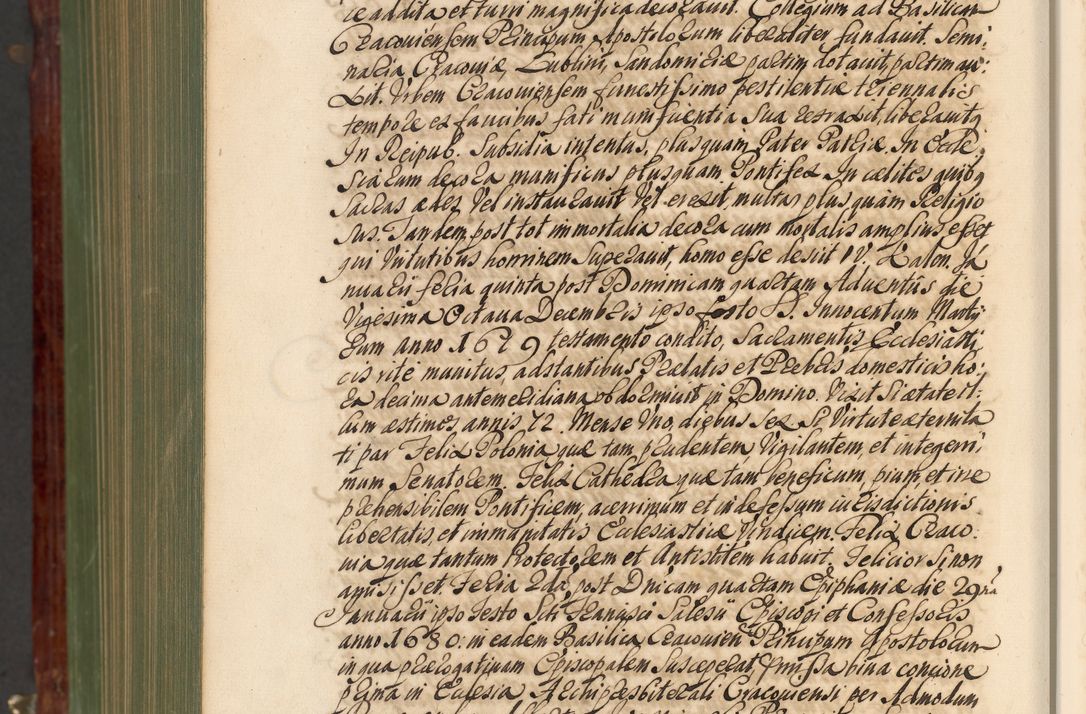 ce addita et turri magnifica decoravit. Collegium ad Basilicam
Cracoviensem Principum Apostolorum liberaliter fundavit. Semi,
naria Cracoviæ, Lublini, Sandomiriæ partim dotavit partim au,
xit. Urbem Cracoviensem funestissimo pestilentiæ triennalis
tempore ex faucibus fati munificentia sua retraxit, liberavitq
In Reipub. Subsidia intentus, plusquam Pater Patriæ. In Eccle,
siarum decora manificus plusquam Pontifex In cælites quibq
sacras ædes vel instauravit vel erexit multas plus quam Religio
sus. Tandem post tot immortalia decora cum mortalis amplius esset
qui virtutibus hominem superavit, homo esse desiit IV. Kalen. Ja
nuarii feria quinta post Dominicam quartam Adventus die
Vigesima Octava Decembris ipso festo SS. Innocentum Marty
rum anno 1679 testamento condito, Sacramentis Ecclesiasti
cis rite munitus, adstantibus Prælatis et Præbris domesticis ho,
ra decima antemeridiana obdormivit in Domino. Vixit si ætate il,
lum æstimes annis 72. Mense Uno, diebus sex si Virtute æternita
ti par Felix Polonia quæ tam prudentem Vigilantem, et integerri
mum Senatorem. Felix Cathedra quæ tam beneficum, pium, et irre
prehensibilem Pontificem, acerrimum et indefessum iurisdictionis
libertatis, et immunitatis Ecclesiasticæ Vindicem. Felix Craco.
via quæ tantum Protectorem et Antistitem habuit. Felicior si non
amisisset. Feria 2da post Dnicam quartam Epiphaniæ die 29na
Januarii ipso Festo Scti Francisci Salesii Episcopi et Confessoris
anno 1680. in eadem Basilica Cracovien Principum Apostolorum
in qua prærogativam Episcopalem susceperat præmissa bina concione
prima in Ecclesia Archipresbiterali Cracoviensi per Admodum